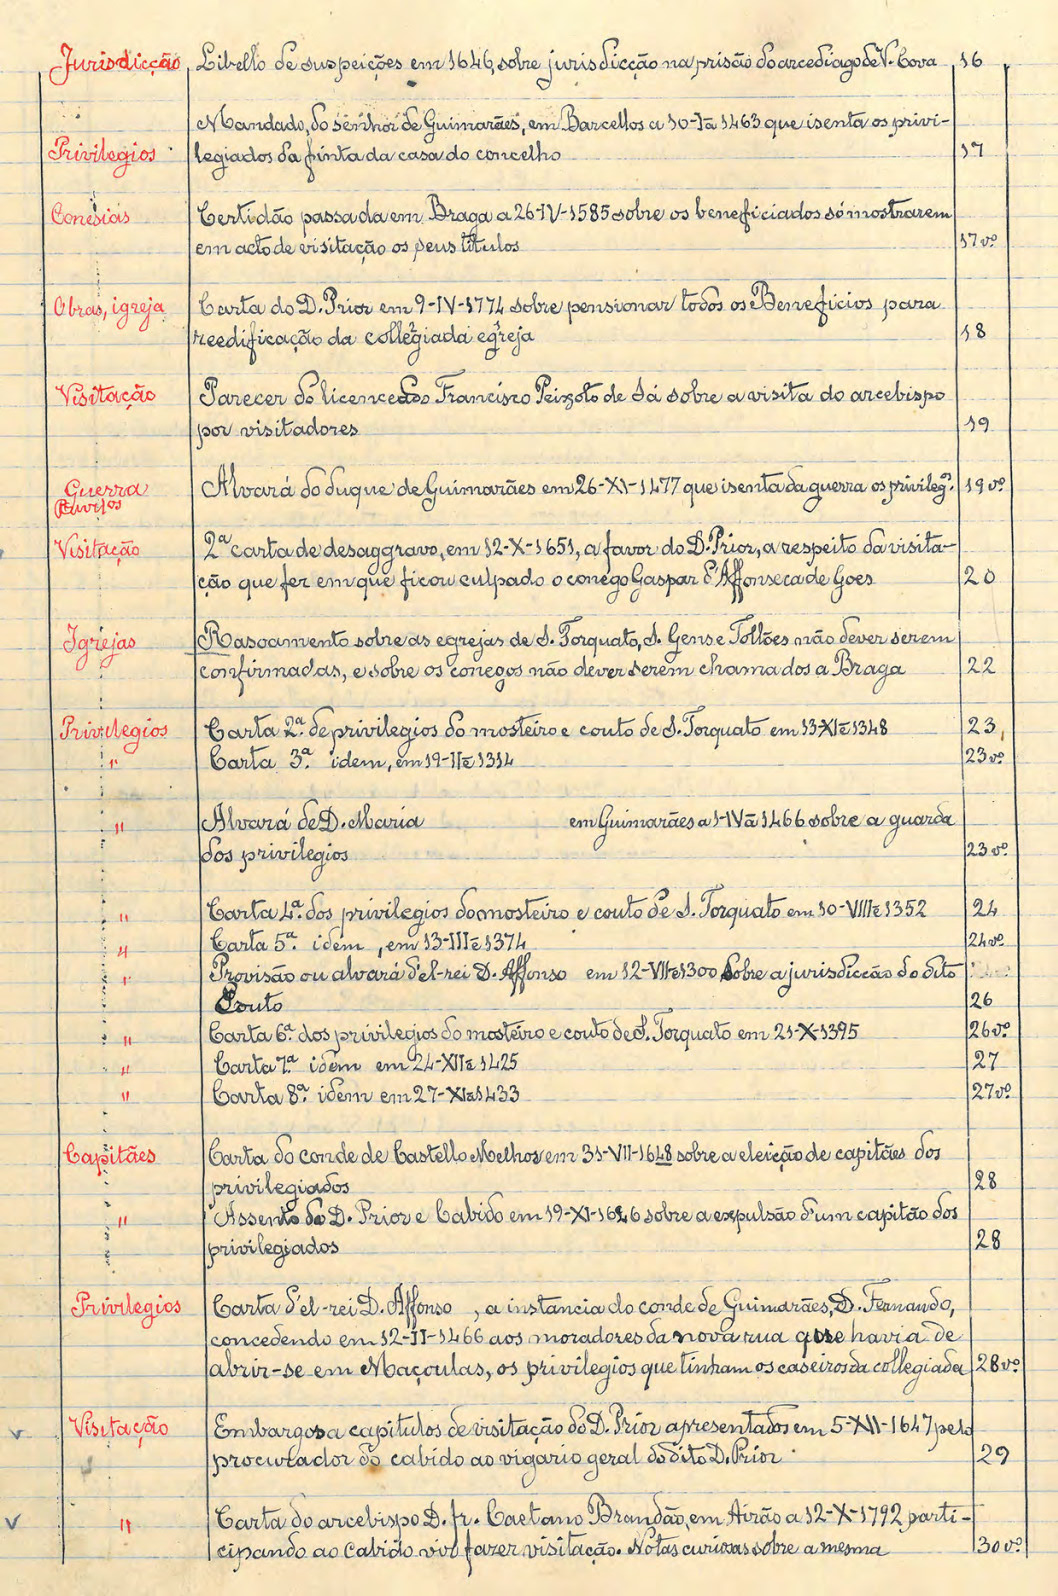 Jurisdicção Libello de suspeições em 1646, sobre jurisdicção na prisão do arcediago de V. Cova 16
Mandado, do senhor de Guimarães, em Barcellos a 10-I-a 1463 que isenta os privi-
Privilegios legiados da finta da casa do concelho 17
Conesias Certidão passada em Braga a 26-IV-1585 sobre os beneficiados só mostrarem
em acto de visitação os seus titulos 17 vº
Obras, igreja Carta do D. Prior em 9-IV-1774 sobre pensionar todos os Beneficios para
reedificação da collegiada egreja 18
Visitação Parecer do licenceado Francisco Peixoto de Sá sobre a visita do arcebispo
por visitadores 19
Guerra Alvará do duque de Guimarães em 26-XI-1477 que isenta da guerra os privilegos. 19 vº
Visitação 2ª carta de desaggravo, em 12-X-1651, a favor do D. Prior, a respeito da visita-
ção que fez em que ficou culpado o conego Gaspar d'Affonseca de Goes 20
Igrejas Rasoamento sobre as egrejas de S. Torquato, S. Gens e Tollões não dever serem
confirmadas, e sobre os conegos não dever serem chamados a Braga 22
Privilegios Carta 2ª. de privilegios do mosteiro e couto de S. Torquato em 13-XI-e 1348 23
" Carta 3ª. idem, em 19-II-e 1314 23 vº
" Alvará de D. Maria em Guimarães a 1-IV-a 1466 sobre a guarda
dos privilegios 23 vº
" Carta 4ª. dos privilegios do mosteiro e couto de S. Torquato em 10-VIII-e 1352 24
" Carta 5ª. idem, em 13-III-e 1374 24 vº
" Provisão ou alvará d'el-rei D. Affonso em 12-VII-e 1300 sobre a jurisdicção do dito
Couto 26
" Carta 6ª. dos privilegios do mosteiro e couto de S. Torquato em 21-X-1395 26 vº
" Carta 7ª. idem em 24-XII-e 1425 27
" Carta 8ª. idem em 27-XI-a 1433 27 vº
Capitães Carta do conde de Castello Melhor em 31-VII-1648 sobre a eleição de capitães dos
privilegiados 28
" Assento do D. Prior e Cabido em 19-XI-1646 sobre a expulsão d'um capitão dos
privilegiados 28
Privilegios Carta d'el-rei D. Affonso , a instancia do conde de Guimarães, D. Fernando,
concedendo em 12-II-1466 aos moradores da nova rua que havia de
abrir-se em Maçoulas, os privilegios que tinham os caseiros da collegiada 28 vº
v Visitação Embargos a capitulos de visitação do D. Prior apresentados em 5-XII-1647 pelo
procurador do cabido ao vigario geral do dito D. Prior 29
v " Carta do arcebispo D. fr. Caetano Brandão, em Airão a 12-X-1792 parti-
cipando ao Cabido vir fazer visitação. Notas curiosas sobre a mesma 30 vº